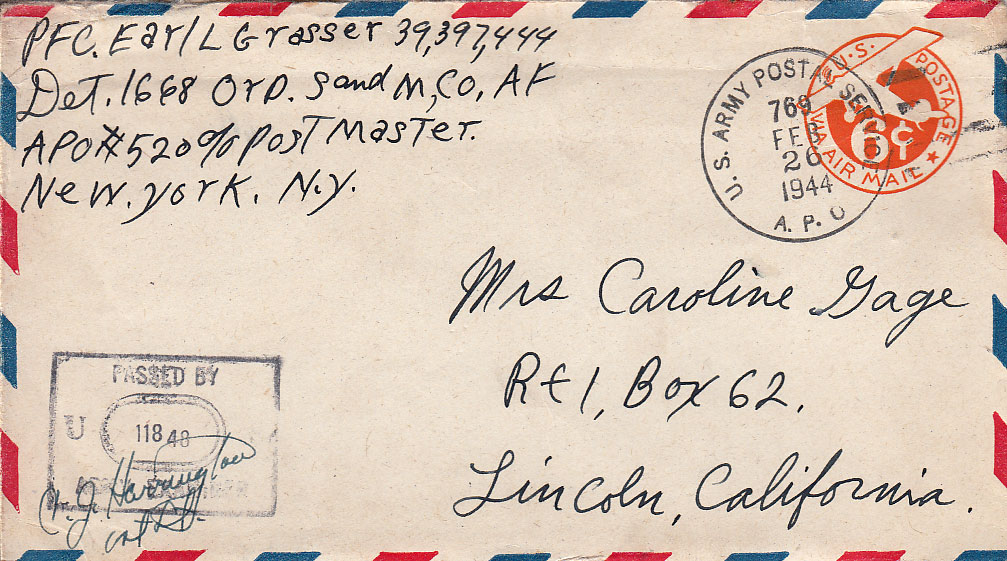 PFC. Earl L Grasser 39,397,444
Det. 1668 Ord. S and M, Co, AF
APO# 520 % Post Master.
New. york. N.y.
U.S. ARMY POSTAL SERVICE
769
FEB
26
1944
A. P. O
U.S. POSTAGE
6¢
VIA AIR MAIL
Mrs Caroline Gage
Rt 1, Box 62.
Lincoln, California.
PASSED BY
U
11848
EXAMINER
W. J. Harrington